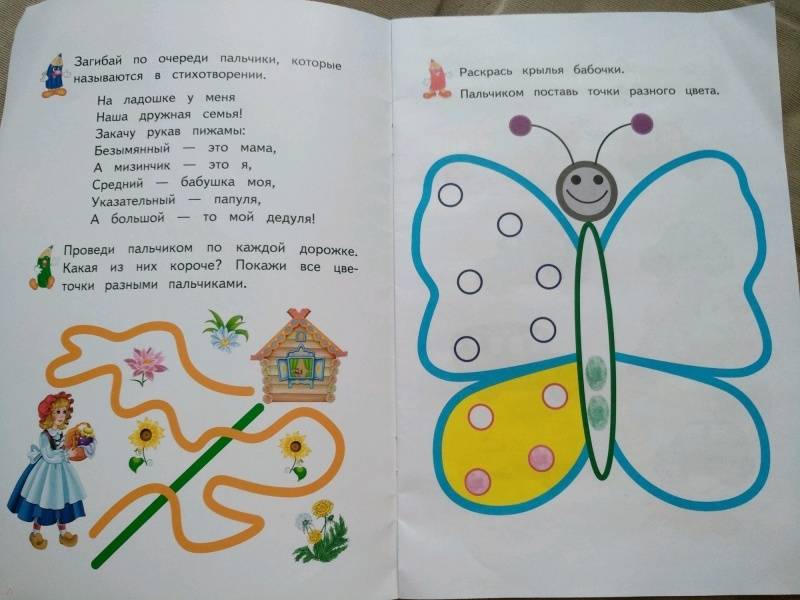 Загибай по очереди пальчики, которые
называются в стихотворении.
На ладошке у меня
Наша дружная семья!
Закачу рукав пижамы:
Безымянный — это мама,
А мизинчик — это я,
Средний — бабушка моя,
Указательный — папуля,
А большой — то мой дедуля!
Проведи пальчиком по каждой дорожке.
Какая из них короче? Покажи все цве-
точки разными пальчиками.
Раскрась крылья бабочки.
Пальчиком поставь точки разного цвета.